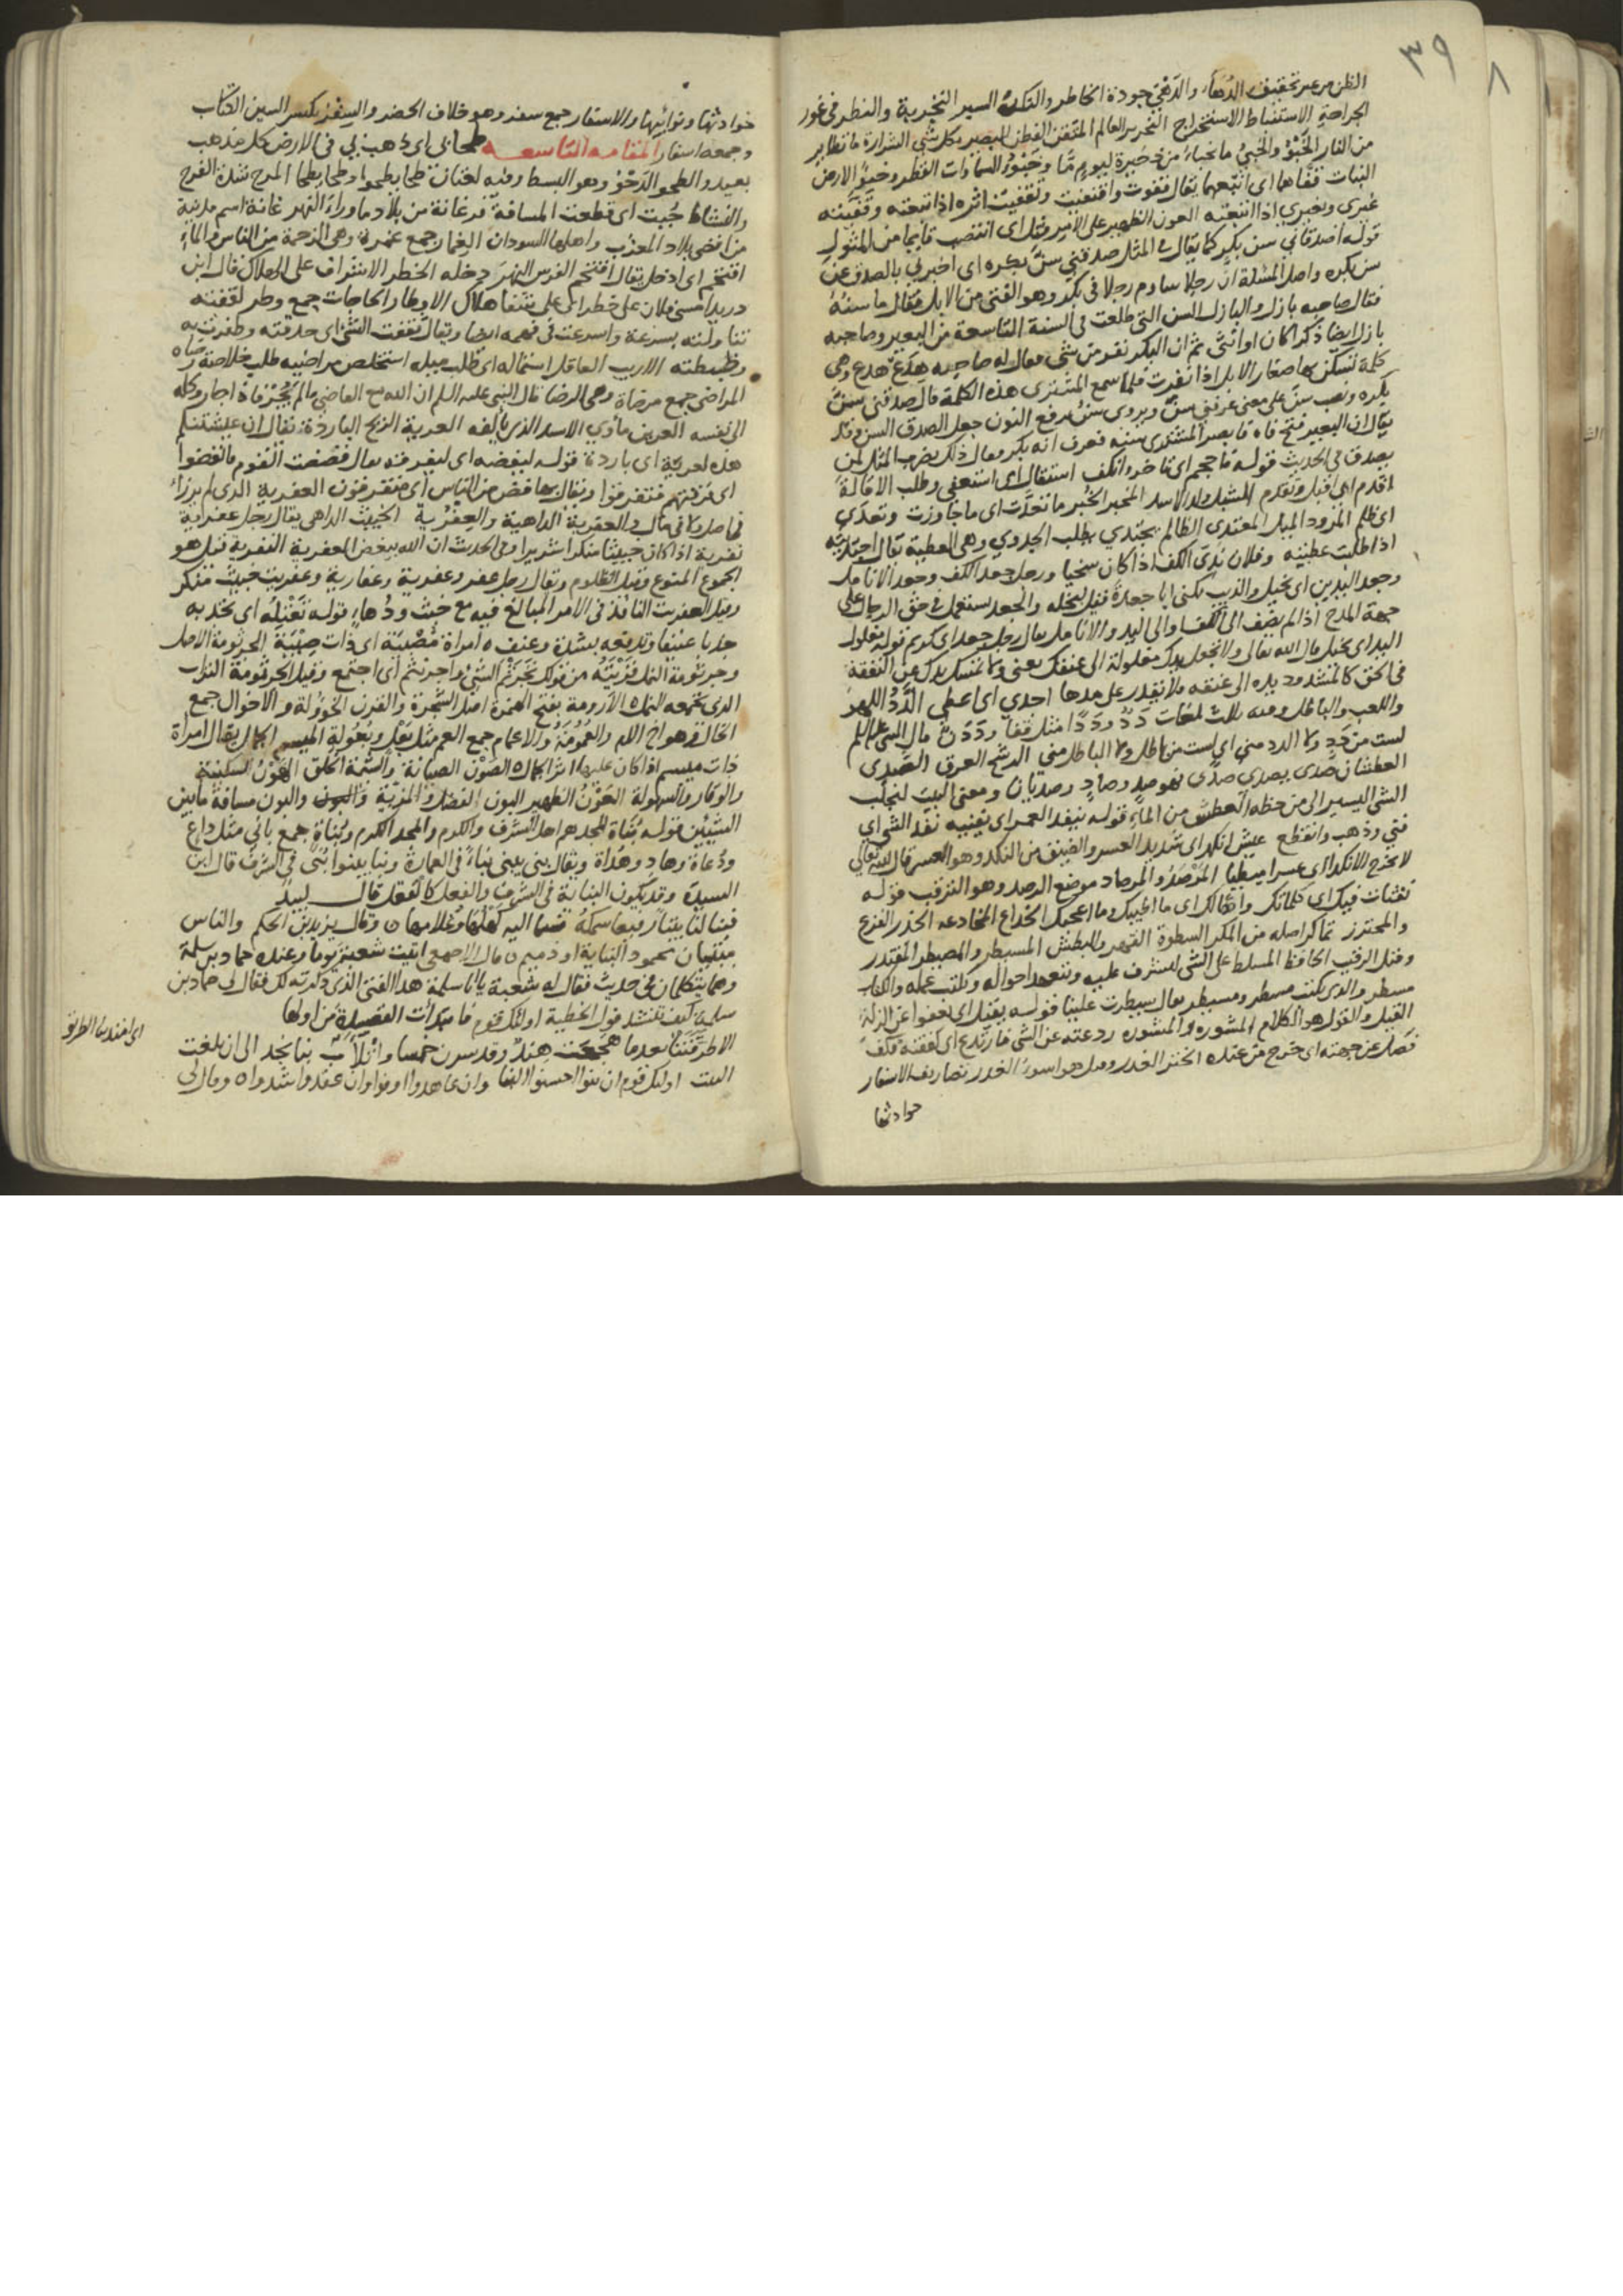 ٣٩
٨
الظن من غير تحقيق الدهاء والدهي جودة الخاطر السبر التجربة والنظر في غور
الجراحة الاستنباط الاستخراج النحرير العالم المتقن الفطن البصير بكل شي الشرارة ما تطاير
من النار الخبؤ والخبئ ما خباءه من ذخيرة ليوم ما وخبؤ السماوات القطر وخبؤ الارض
النبات قفاها اى اتبعها يقال قفوت واقتفيت وتقفيت اثره اذا تبعته وقفيته
غيرى وبغيري اذا اتبعته العون الظهير على الامر مثل اى انتصب قايما من المثول
قوله اصدقاني سن بكر كما يقال في المثل صدقني سن بكره اى اخبرني بالصدق عن
سن بكره واصل المسئلة ان رجلا ساوم رجلا في بكر وهو الفتى من الابل فقال ما سنه
فقال صاحبه بازل والبازل السن التي طلعت في السنة التاسعة من البعير وصاحبه
بازل ايضا ذكرا كان او انثى ثم ان البكر نفر من شي فقال له صاحبه هدع هدع وهى
كلمة تسكن بها صغار الابل اذا نفرت فلما سمع المشترى هذه الكلمة قال صدقني سن
بكره ونصب سن على معنى عرفني سن ويروى سن برفع النون جعل الصدق للسن وقد
يقال ان البعير فتح فاه فابصر المشترى سنه فعرف انه بكر فقال ذلك يضرب المثل لمن
يصدق في الحديث قوله فاحجم اى تاخر وانكف استقال اى استعفى وطلب الاقالة
اقدم اى اقبل وتقدم الشبل ولد الاسد المخبر الخبر ما تعدت اى ما جاوزت وتعدي
اى ظلم المعتدى الظالم يجتدي يطلب الجدوي وهى العطية يقال اجتديته
اذا طلبت عطيته وفلان ندى الكف اذا كان سخيا ورجل جعد الكف وجعد الانامل
وجعد اليدين اى بخيل والذيب يكنى ابا جعدة قيل لبخله والجعد يستعمل في حق الرجال على
جهة المدح اذا لم يضف الى الكف والى اليد والانامل يقال رجل جعد اى كريم قوله مغلول
اليد اى بخيل قال الله تعالى ولا تجعل يدك مغلولة الى عنقك يعنى ولا تمسك يدك عن النفقة
في الحق كالمشدود يده الى عنقه ولا يقدر على مدها احدي اى اعطى الدد اللهو
واللعب والباطل ومنه ثلاث لغات دد وددا مثل قفا وددن قال النبي عليه السلم
لست من دد ولا الدد مني اى لست من الباطل ولا الباطل مني الرشح العرق الصدى
العطشان صدى يصدي صدى فهو صد وصاد وصديان ومعنى البيت لنجلب
الشي اليسير الى من حظه العطش من الماء قوله ينفد العمر اى يفنيه نفد الشي اى
فني وذهب وانقطع عيش انكد اى شديد العسر والضيق من النكد وهو العسر قال الله تعالى
لا يخرج الا نكدا اى عسرا مبطيا المرصد والمرصاد موضع الرصد وهو الترقب قوله
نفثات فيك اى كلماتك واها لك اى ما اطيبك وما اعجبك الخداع المخادعه الحذر الفزع
والمحترز تماكر اصله من المكر السطوة القهر والبطش المسيطر والمصيطر المقتدر
وقيل الرقيب الحافظ المسلط على الشي ليشرف عليه ويتعهد احواله ويكتب عمله والكتاب
مسطر والذى يكتب مسطر ومسيطر يقال سيطرت علينا قوله يقيل اى يعفوا عن الزلة
القيل والقول هو الكلام المشوره والمشوره ردعته عن الشي فارتدع اى كففته فكف
فصل عن جهته اى خرج من عنده الختر الغدر وقيل هو اسوء الغدر تصاريف الاسفار
حوادثها
حوادثها ونوائبها والاسفار جمع سفر وهو خلاف الحضر والسفر بكسر السين الكتاب
وجمعه اسفار المقامه التاسعه طحا بي اى ذهب بي في الارض كل مذهب
بعيد والطحو الدحو وهو البسط وفيه لغتان طحا يطحوا وطحا يطحا المرح شدة الفرح
والنشاط جبت اى قطعت المسافة فرغانة من بلاد ما وراء النهر غانة اسم مدينة
من اقصى بلاد المغرب واهلها السودان الغمار جمع غمرة وهى الزحمة من الناس والماء
اقتحم اى ادخل يقال اقتحم الفرس النهر دخله الخطر الاشراف على الهلاك قال ابن
دريد امسى فلان على خطر اى على شفا هلاك الاوطار الحاجات جمع وطر لقفته
تناولته بسرعة واسرعت في فهمه ايضا ويقال ثقفت الشي اى حذقته وظفرت به
وضبطته الاريب العاقل استماله اى طلب ميله استخلص مراضيه طلب خلاصة رضاه
المراضى جمع مرضاة وهى الرضا قال النبي عليه السلم ان الله مع القاضي ما لم يجر فاذا جار وكله
الى نفسه العرين مأوى الاسد الذى يألفه العرية الريح الباردة يقال ان عشيتكم
هذه لعرية اى باردة قوله لبفضه اى ليفرقه يقال فضضت القوم فانفضوا
اى فرقتهم فتفرقوا ويقال بها فض من الناس اى متفرقون العفرية الذى لم يرزأ
في اهل ولا في مال والعفرية الداهية والعفرية الخبيث الداهي يقال رجل عفرية
نفرية اذا كان خبيثا منكرا شريرا وفي الحديث ان الله يبغض العفرية النفرية قيل هو
الجموع المنوع وقيل الظلوم ويقال رجل عفر وعفرية وعفارية وعفريت خبيث منكر
وقيل العفريت النافذ في الامر المبالغ فيه مع خبث ودهاء قوله تعتله اى تجذبه
جذبا عنيفا وتدفعه بشدة وعنف ه امراة مصبية اى ذات صبية الجرثومة الاصل
وجرثومة النمل قريته من قولك تجرثم الشي واجرنثم اى اجتمع وقيل الجرثومة التراب
الذى تجمعه النمل ه الارومة بفتح الهمزة اصل الشجرة والقرن الخؤولة والاخوال جمع
الخال وهو اخ الام والعمومة والاعمام جمع العم مثل بعل وبعولة الميسم الجمال يقال امراة
ذات ميسم اذا كان عليها اثر الجمال ه الصون الصيانة والشيمة الخلق الهون السكينة
والوقار والسهولة العون الظهير البون الفضل والمزية والبون والبون مسافة ما بين
الشيئين قوله بناة المجد هم اهل الشرف والكرم والمجد الكرم وبناة جمع باني مثل داع
ودعاة وهاد وهداة ويقال بنى يبنى بناء في العمارة وبنا يبنوا بنى في الشرف قال ابن
السيدة وقد يكون البناية في الشرف والفعل كالفعل قال لبيد
فبنا لنا بيتا رفيعا سمكه فسما اليه كهلها وغلامها ه وقال يزيد بن الحكم والناس
مبتنيان محمود البناية او ذميم ه قال الاصمعي اتيت شعبة يوما وعنده حماد بن سلمة
وهما يتكلمان في حديث فقال له شعبة يا ابا سلمة هذا الفتى الذى ذكرته لك فقال لي حماد بن
سلمة كيف تنشد قول الحطيئة اولئك قوم فابتدأت القصيدة من اولها
الا طرقتنا بعدما هجعت هند وقد سرن خمسا واتلأب بنا نجد الى ان بلغت
البيت اولئك قوم ان بنوا احسنوا البنا وان عاهدوا اوفوا وان عقدوا شدوا ه وقال لي